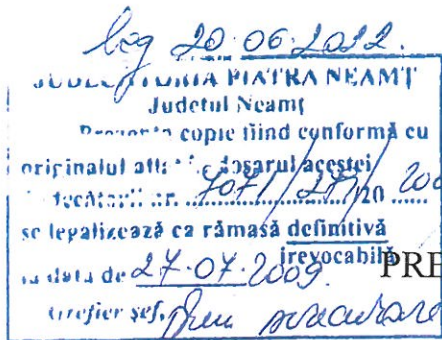 leg 20.06.2022.
JUDECĂTORIA PIATRA NEAMŢ
Judeţul Neamţ
Prezenta copie fiind conformă cu
originalul aflat în dosarul acestei
nr. 7071/279/20
se legalizează ca rămasă definitivă
irevocabilă
la data de 27.07.2009. PRE
Grefier şef,